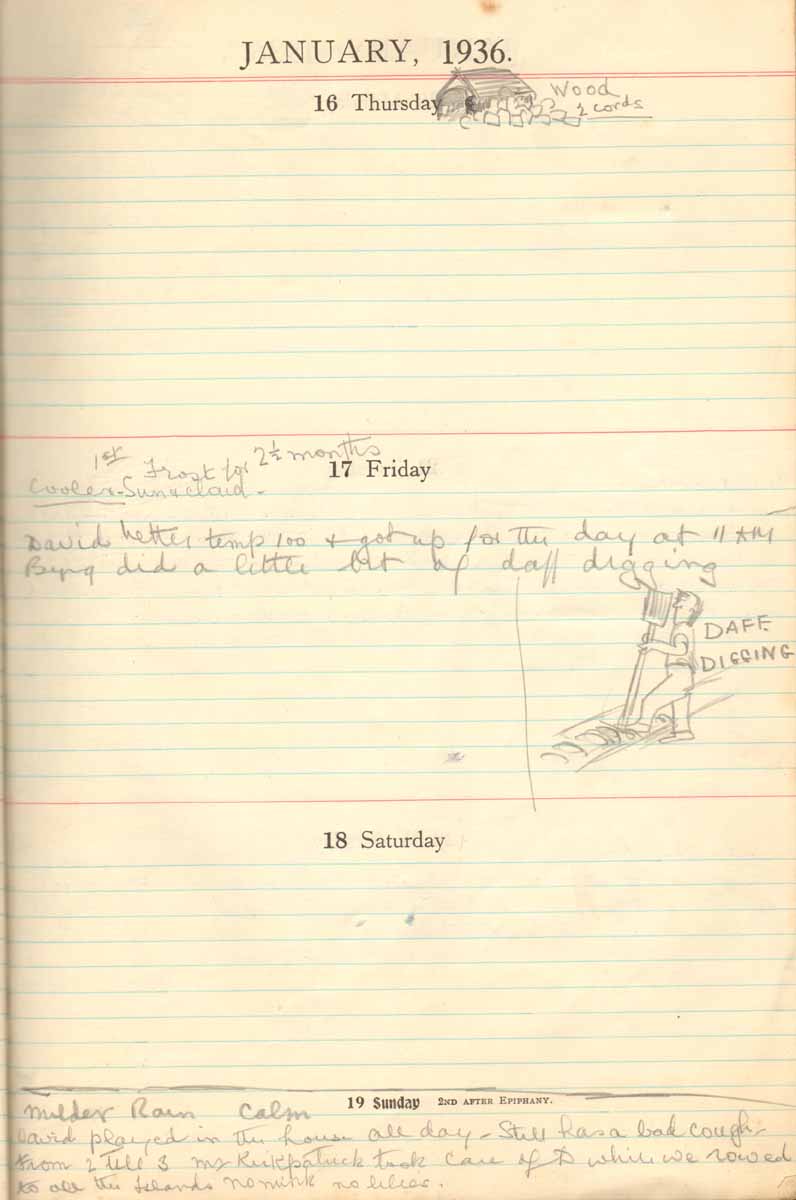 JANUARY, 1936.
16 Thursday
Wood
2 cords
1st Frost for 2½ months
17 Friday
Cooler - Sun & cloud -
David better temp 100 + got up for the day at 11 AM
Byng did a little bit of daff digging
DAFF.
DIGGING
18 Saturday
19 Sunday 2ND AFTER EPIPHANY.
Milder Rain Calm
David played in the house all day - Still has a bad cough -
From 2 till 3 Mrs Kirkpatrick took care of D while we rowed
to all the Islands no mink no lilies.